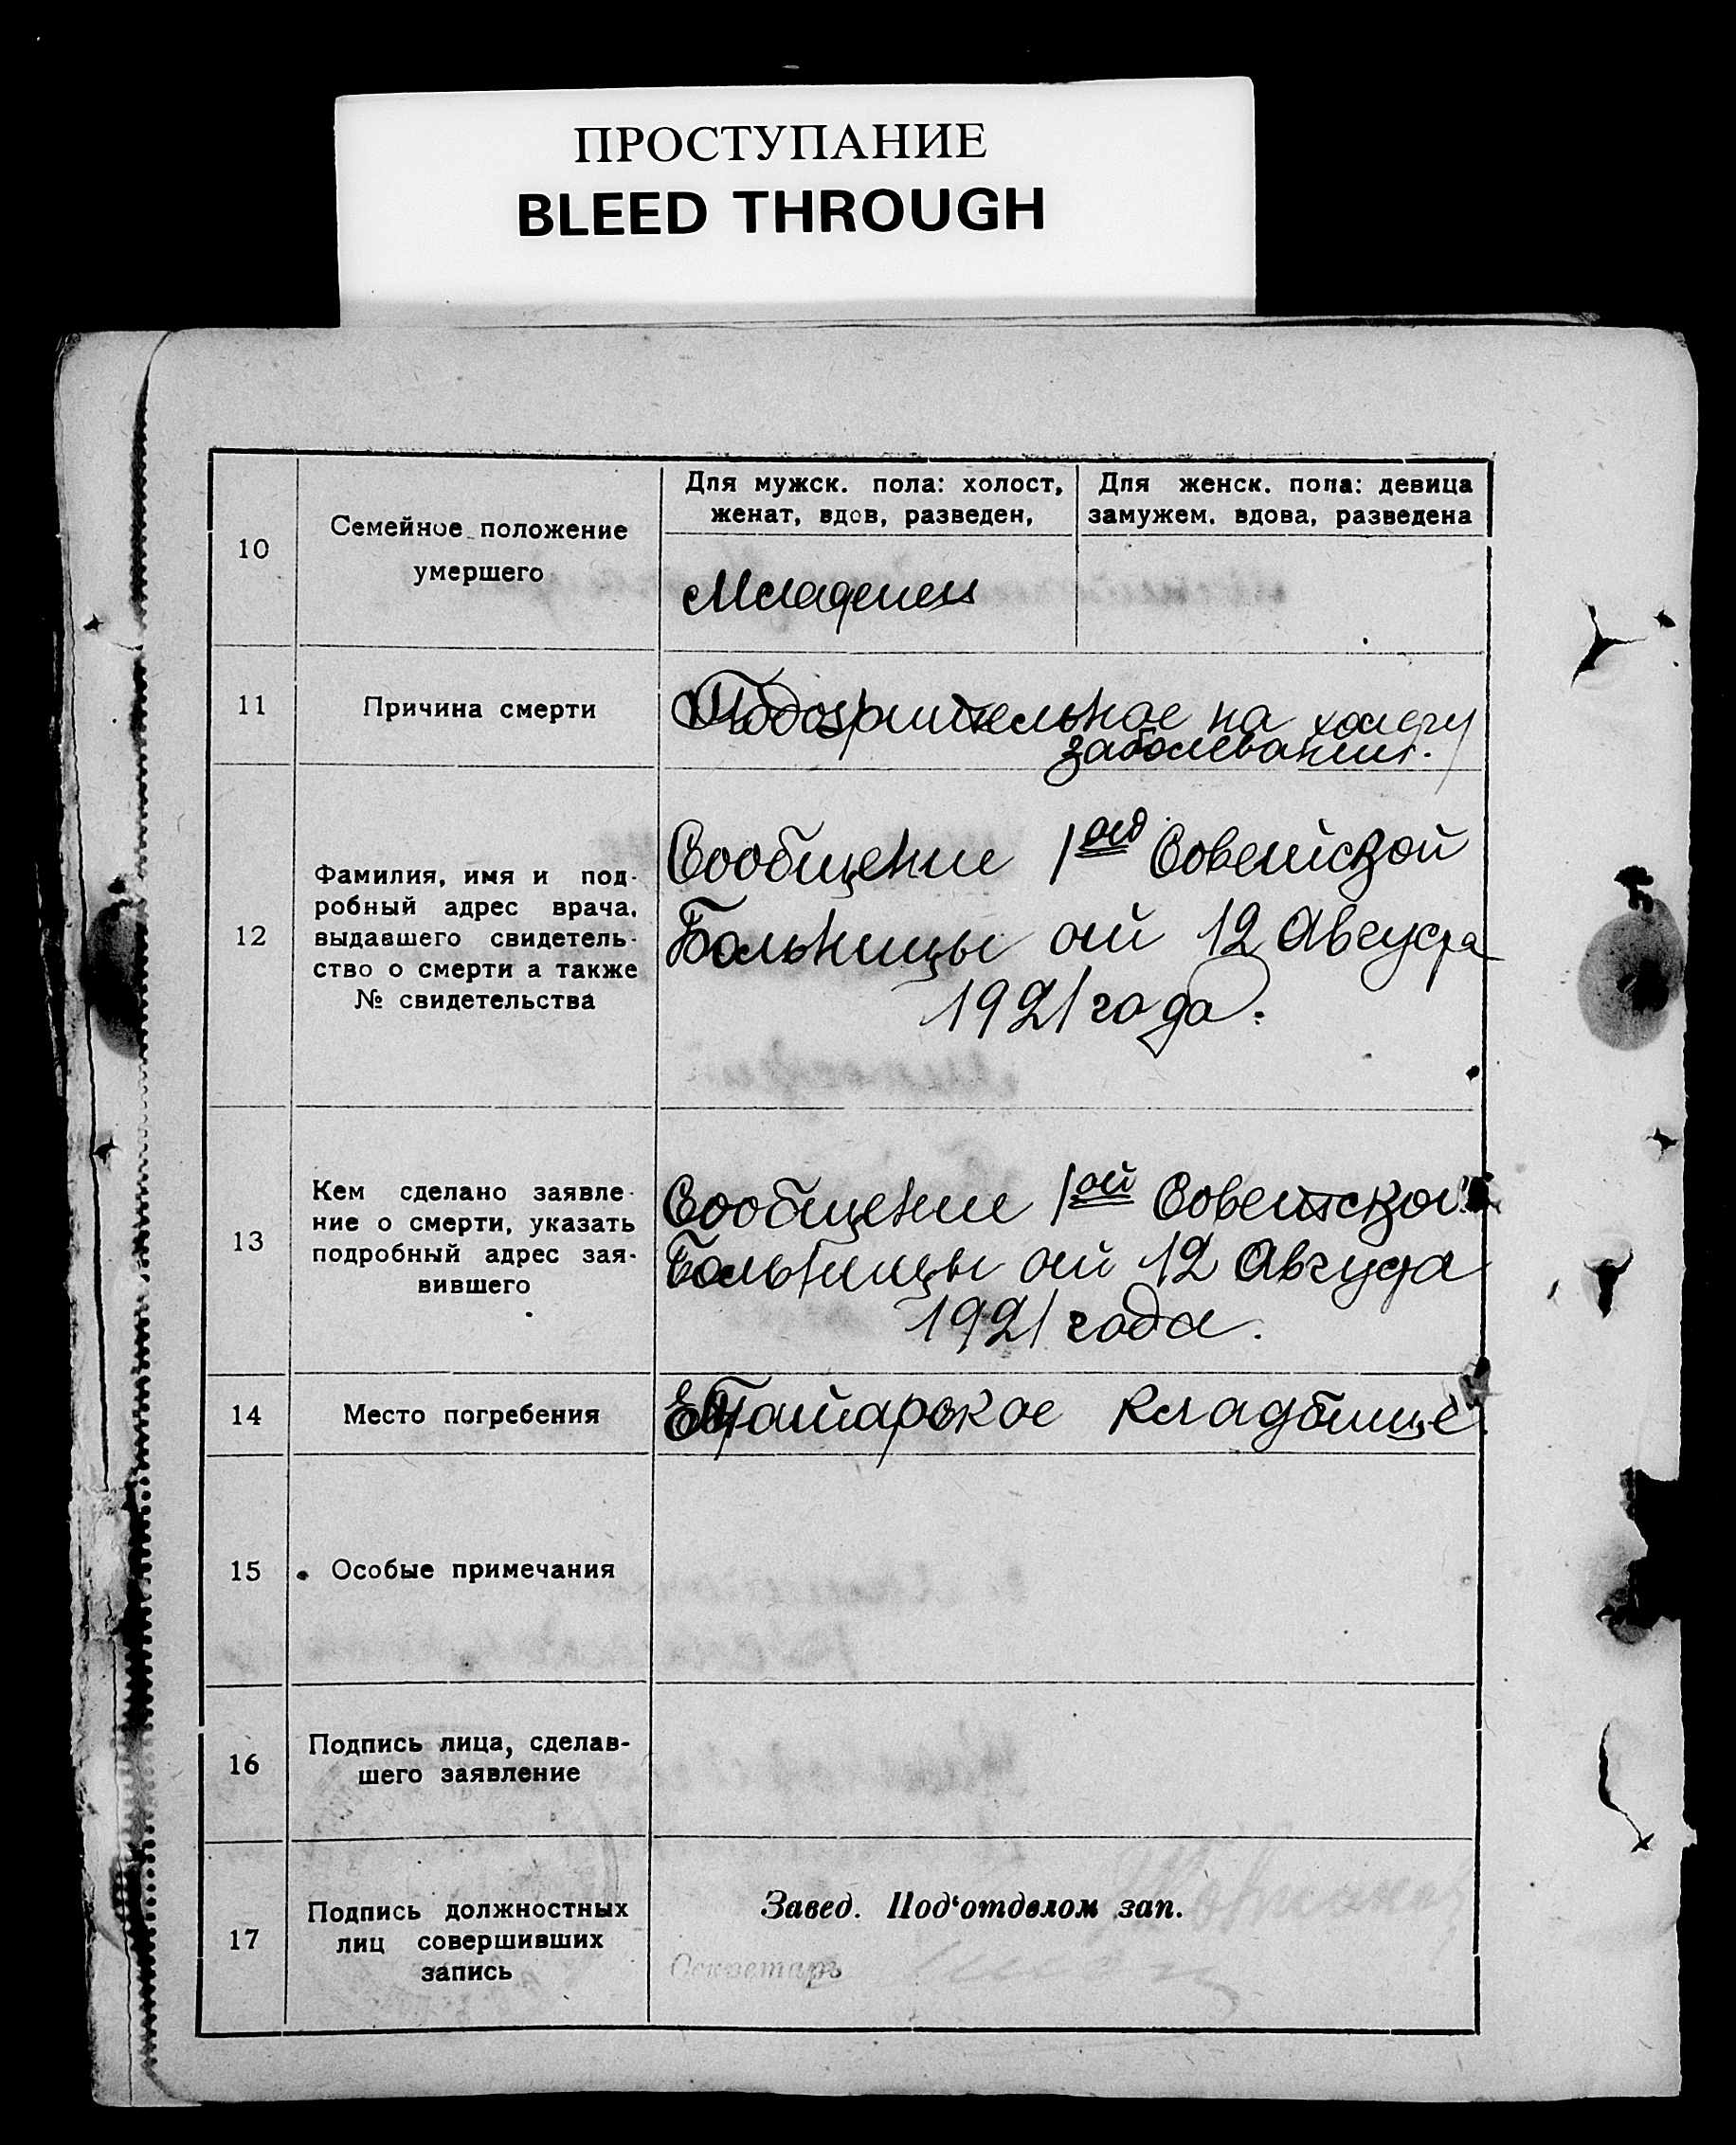 ПРОСТУПАНИЕ
BLEED THROUGH
10
Семейное положение
умершего
Для мужск. пола: холост,
женат, вдов, разведен,
Для женск. пола: девица
замужем. вдова, разведена
Младенец
11
Причина смерти
Подозрительное на холеру
заболевание.
12
Фамилия, имя и под-
робный адрес врача,
выдавшего свидетель-
ство о смерти а также
№ свидетельства
Сообщение 1ой Советской
Больницы от 12 Августа
1921 года.
13
Кем сделано заявле-
ние о смерти, указать
подробный адрес зая-
вившего
Сообщение 1ой Советской
Больницы от 12 Августа
1921 года.
14
Место погребения
Татарское кладбище
15
Особые примечания
16
Подпись лица, сделав-
шего заявление
17
Подпись должностных
лиц совершивших
запись
Завед. Под‘отделом зап.
Секретарь